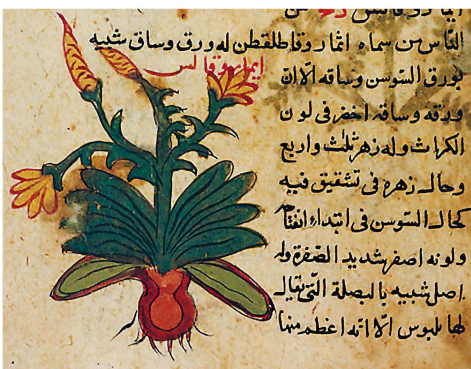 الناس من سماه ايماروقاطلقطن له ورق وساق شبيه
ايماروقالس
بورق السوسن وساقه الا ان
ورقه وساقه اخضر فى لون
الكراث وله زهر ثلث واربع
وحال زهره فى تشقيق فيه
كحال السوسن فى ابتداء انفتاح
ولونه اصفر شديد الصفرة وله
اصل شبيه بالبصلة التى يقال
لها بلبوس الا انه اعظم منها